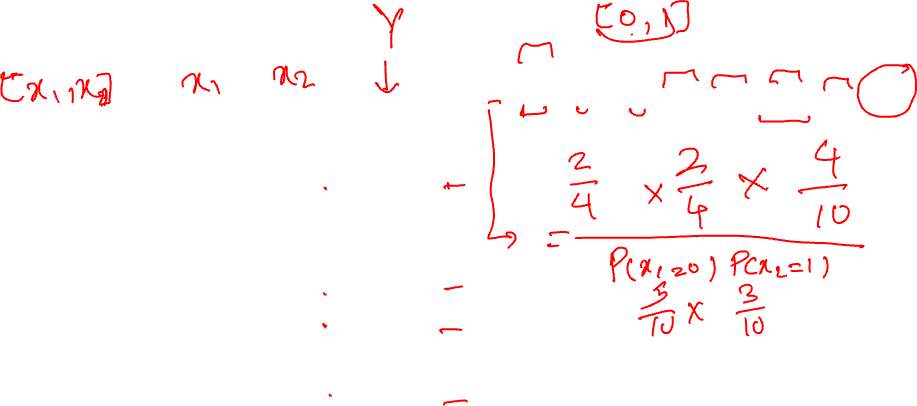 Y [0, 1]
[x₁, x₂] x₁ x₂ ↓
2/4 × 2/4 × 4/10
=
P(x₁=0) P(x₂=1)
5/10 × 3/10